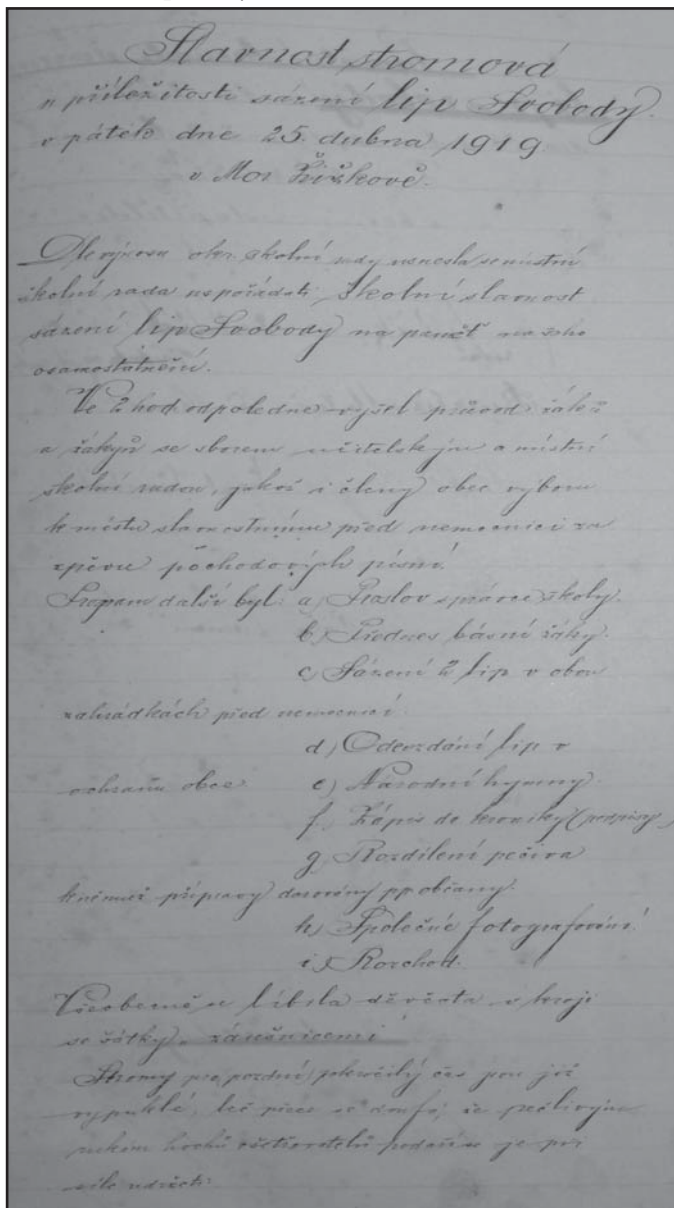 Slavnost stromová
u příležitosti sázení lip Svobody.
v pátek dne 25. dubna 1919.
v Mor Žižkově.
Dle výnosu okr. školní rady usnesla se místní
školní rada uspořádati školní slavnost
sázení lip Svobody na paměť našeho
osamostatnění.
Ve 2 hod odpoledne vyšel průvod žáků
a žákyň se sborem učitelským a místní
školní radou, jakož i členy obec výboru
k místu slavnostnímu před nemocnicí za
zpěvu pochodových písní.
Program další byl: a) Proslov správce školy.
b) Přednes básní žáky.
c) Sázení 2 lip v obou
zahrádkách před nemocnicí
d) Odevzdání lip v
ochranu obce e) Národní hymny.
f) Zápis do kroniky (podpisy)
g) Rozdílení pečiva
k němuž přípravy darovány pp občany.
h) Společné fotografování.
i) Rozchod.
Všeobecně se líbila děvčata v kroji
se šátky,
Stromy pro pozdní pokročilý čas jsou již
vypuklé, leč přece se doufá, že pečlivým
rukám hochů podaří se je při
síle udržeti.